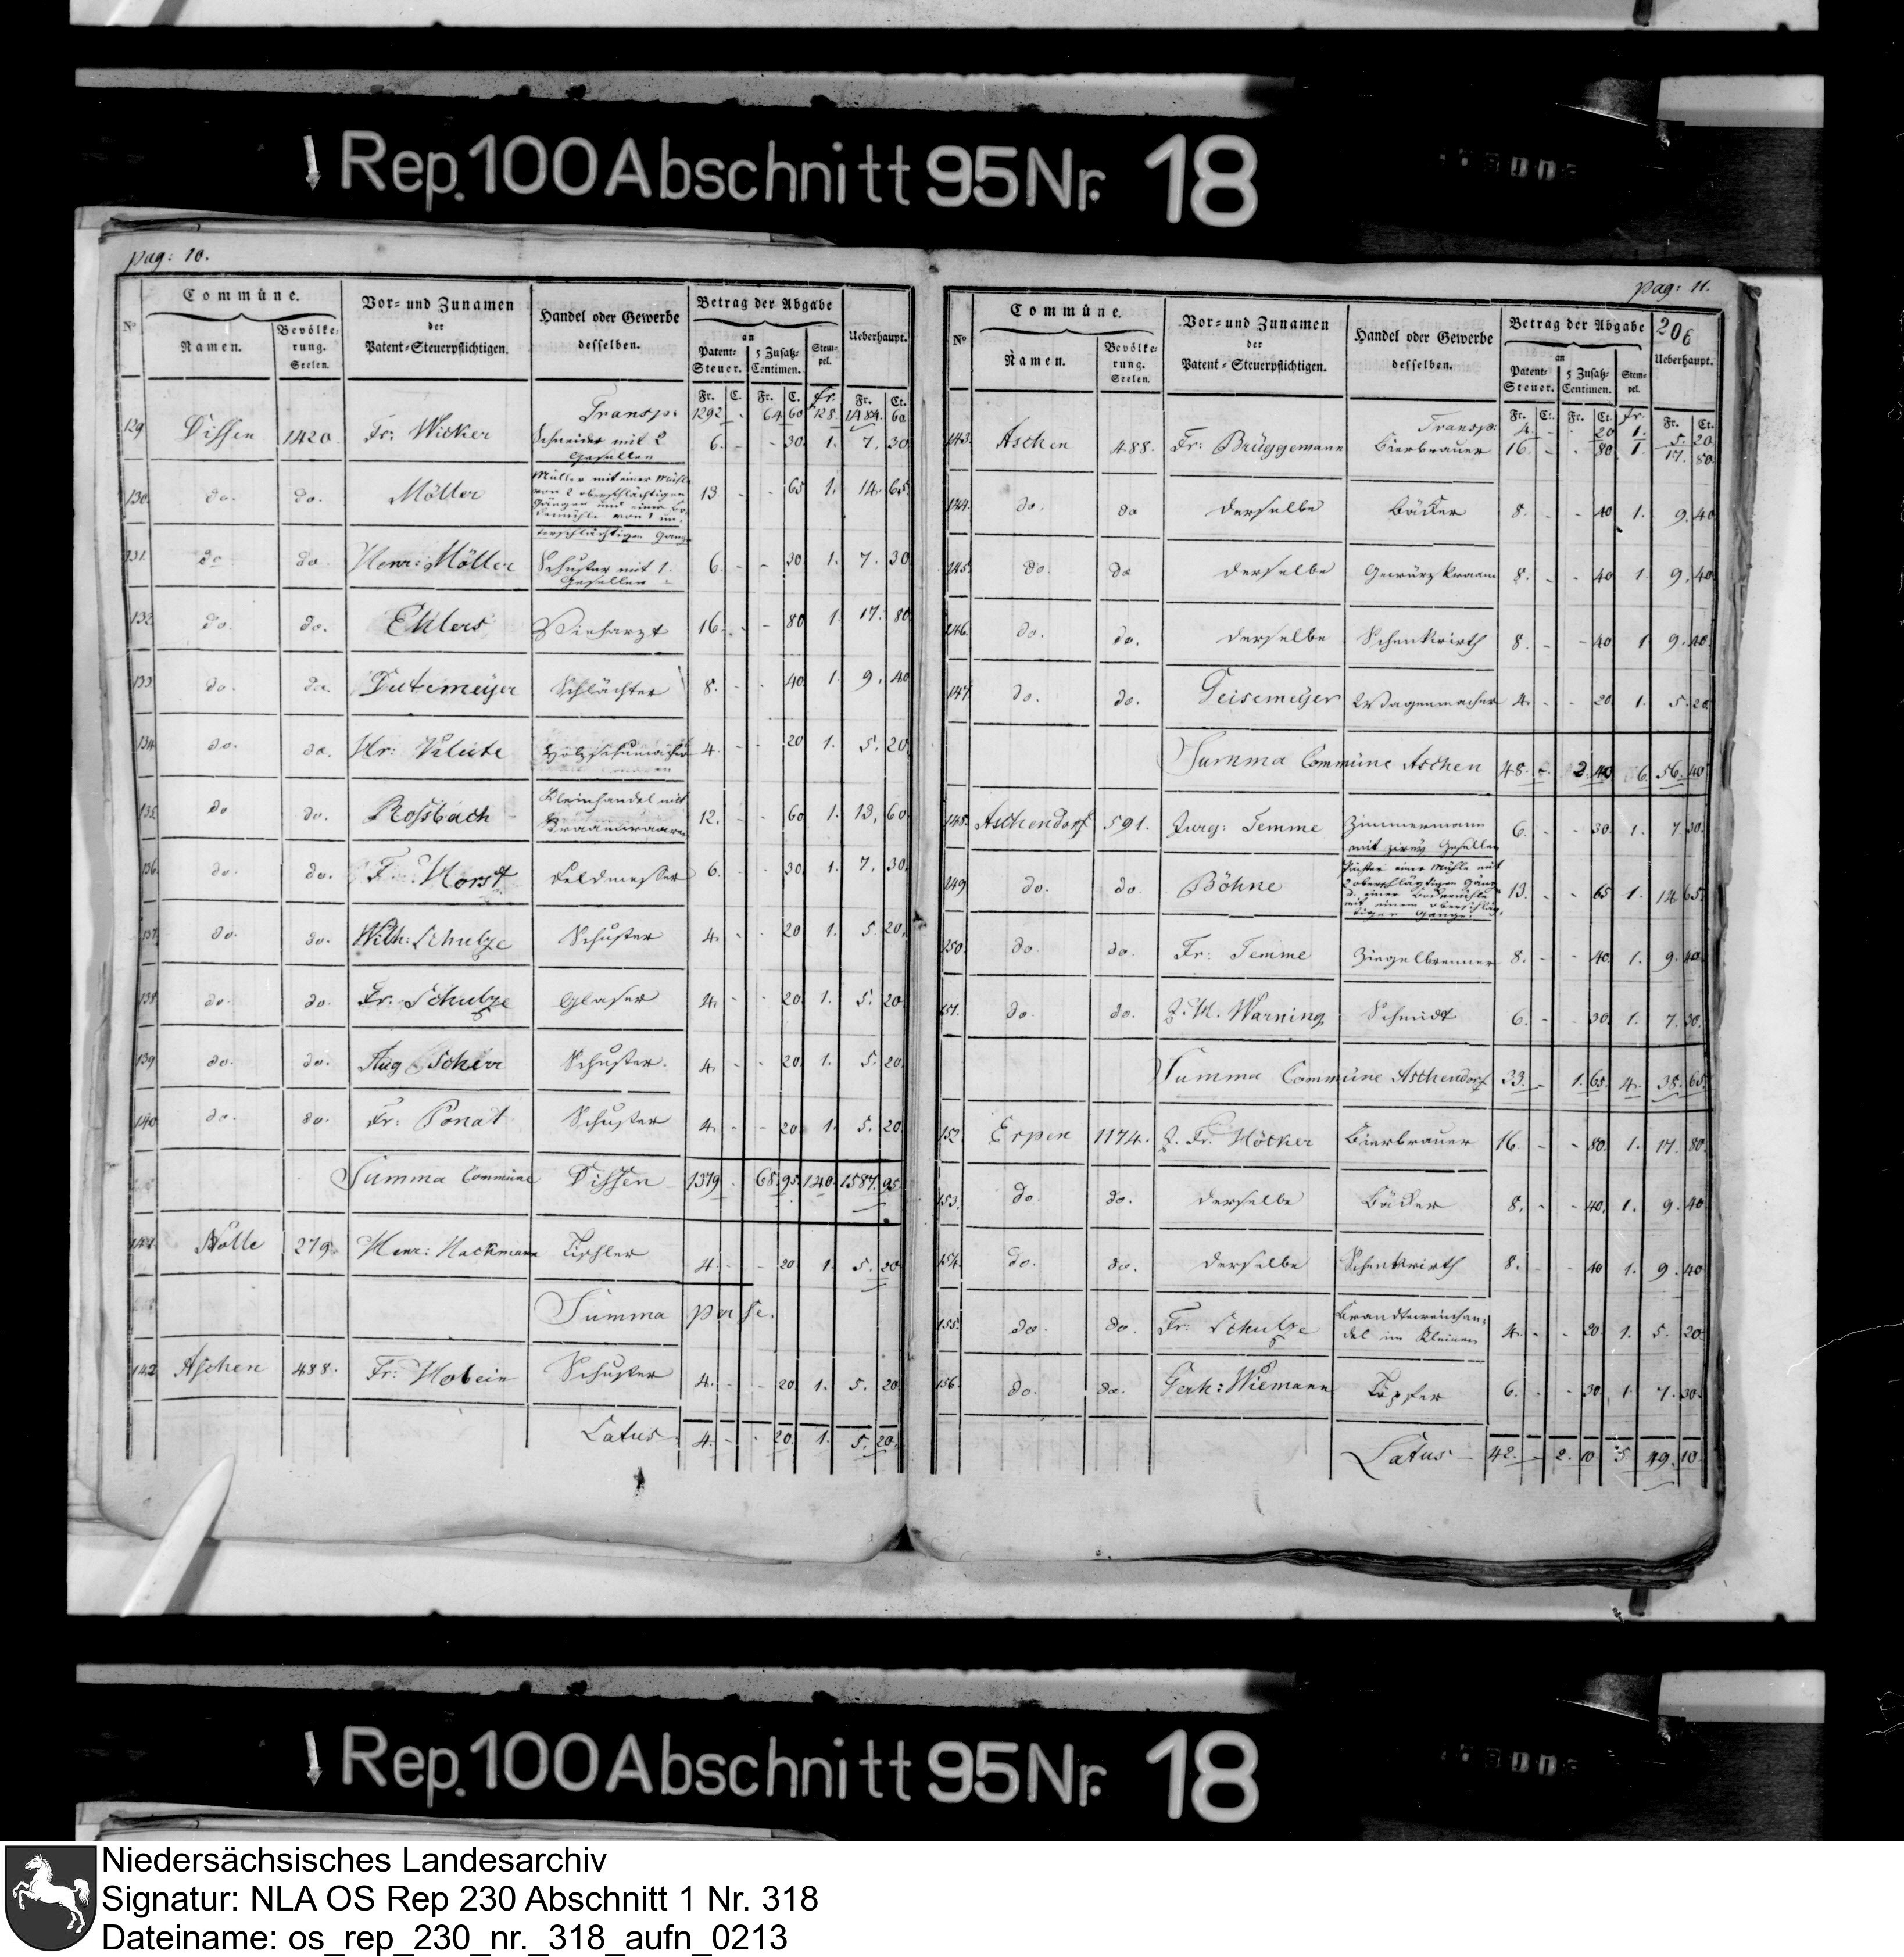 ↓ Rep. 100 Abschnitt 95 Nr. 18
pag: 10.
No Commüne. Namen. Bevölke-rung. Seelen. Vor- und Zunamen der Patent-Steuerpflichtigen. Handel oder Gewerbe desselben. Betrag der Abgabe an Patent-Steuer. 5 Zusatz-Centimen. Stem-pel. Ueberhaupt.
Fr. C. Fr. C. fr. Fr. Ct.
Transp: 1292 - 64 60 128. 1484. 60
129 Dissen 1420 Fr: Wicker Schneider mit 2 Gesellen 6. - - 30 1. 7. 30
130 do. do. Möller Müller mit einer Mühle
von 2 oberschlächtigen
Gänge und einer Bo-
kemühle von 1 un-
terschlächtigen Gange
13 - - 65 1. 14. 65.
131. do do. Henr: Möller Schuster mit 1. Gesellen 6. - - 30 1. 7. 30
132 do. do. Ehlers Vieharzt 16. - - 80 1. 17. 80
133 do. do. Dutemeyer Schlächter 8. - - 40 1. 9. 40
134 do. do. Hr: Holzschumacher 4. - - 20 1. 5. 20
135 do do. Rossbach Kleinhandel mit Kraamwaaren 12. - - 60 1. 13. 60
136. do. do. F. Horst Feldmesser 6. - - 30 1. 7. 30
137 do. do. Wilh: Schulze Schuster 4. - - 20 1. 5. 20.
138 do. do. Fr: Schulze Glaser 4. - - 20 1. 5. 20
139 do. do. Aug Scherr Schuster. 4. - - 20. 1. 5. 20.
140 do. do. Fr: Ponat Schuster 4. - - 20. 1. 5. 20.
Summa Commüne Dissen 1379. - 68. 95 140. 1587. 95.
141. Nolle 279. Henr: Hackmann Tischler 4. - - 20 1. 5. 20
Summa per se.
142 Aschen 488. Fr: Hobein Schuster 4. - - 20. 1. 5. 20
Latus 4. - - 20. 1. 5. 20.
pag: 11.
206
No Commüne. Namen. Bevölke-rung. Seelen. Vor- und Zunamen der Patent-Steuerpflichtigen. Handel oder Gewerbe desselben. Betrag der Abgabe an Patent-Steuer. 5 Zusatz-Centimen. Stem-pel. Ueberhaupt.
Fr. C. Fr. Ct. fr. Fr. Ct.
Transp: 4. - - 20 1. 5. 20
143. Aschen 488. Fr: Brüggemann Bierbrauer 16. - - 80 1. 17. 80
144. do. do derselbe Bäcker 8. - - 40 1. 9. 40
145. do. do derselbe Gewürzkraam 8. - - 40 1. 9. 40.
146. do. do. derselbe Schenkwirth 8. - - 40 1 9. 40.
147. do. do. Teisemeyer Wagenmacher 4. - - 20. 1. 5. 20
Summa Commüne Aschen 48. - 2. 40 6. 56. 40
148. Aschendorf 591. Jurg: Temme Zimmermann mit zwey Gesellen 6. - - 30. 1. 7. 30.
149 do. do. Böhne Pächter einer Mühle mit
2 oberschlägtigen Gänge
u. einer Bockemühle
mit einem oberschläg-
tigen Gange.
13. - - 65 1. 14 65.
150. do. do. Fr: Temme Ziegelbrenner 8. - - 40 1. 9. 40.
151. do. do. J. H. Warning Schmidt 6. - - 30. 1. 7. 30.
Summa Commüne Aschendorf 33. - 1. 65. 4. 38. 65.
152. Erpen 1174. J. Fr. Höcker Bierbrauer 16 - - 80. 1. 17. 80.
153. do. do. derselbe Bäcker 8. - - 40. 1. 9. 40
154. do. do. derselbe Schenkwirth 8. - - 40 1. 9. 40.
155. do. do. Fr: Schulze Brandteweinhan-del im Kleinen 4. - - 20. 1. 5. 20.
156. do. do. Gerh: Wiemann Töpfer 6. - - 30. 1. 7. 30.
Latus 42. - 2. 10. 5 49. 10
↓ Rep. 100 Abschnitt 95 Nr. 18
Niedersächsisches Landesarchiv
Signatur: NLA OS Rep 230 Abschnitt 1 Nr. 318
Dateiname: os_rep_230_nr._318_aufn_0213